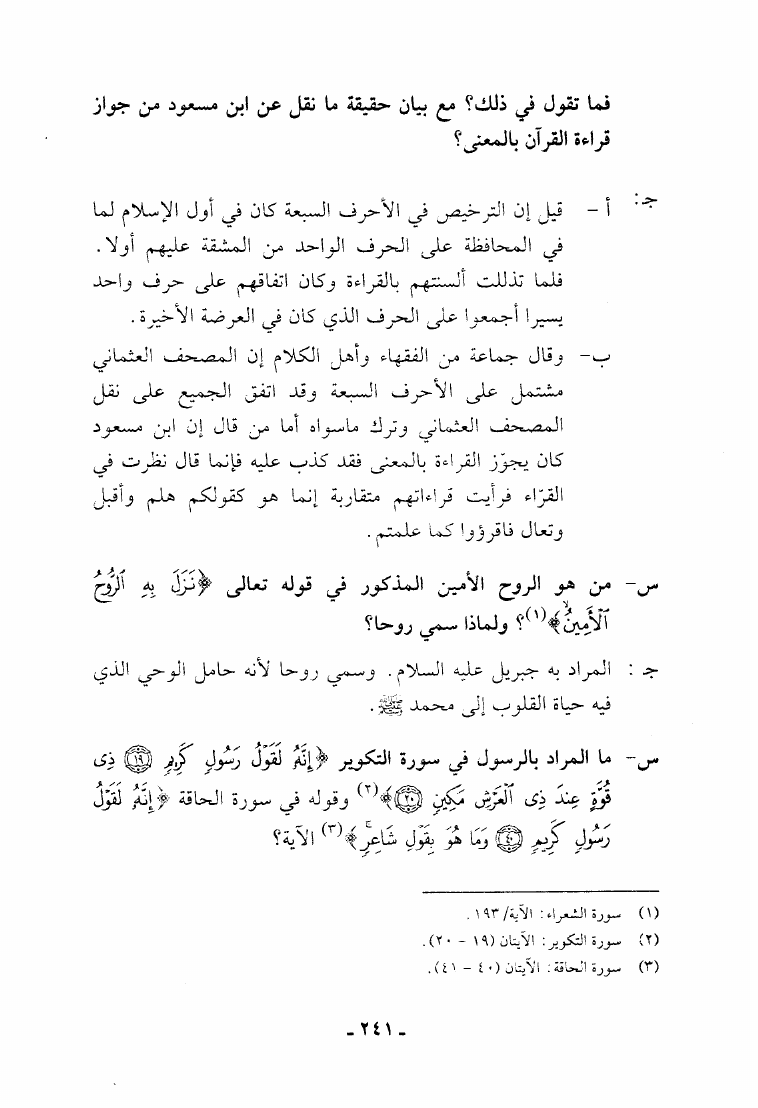 فما تقول في ذلك؟ مع بيان حقيقة ما نقل عن ابن مسعود من جواز
قراءة القرآن بالمعنى؟
جـ: أ - قيل إن الترخيص في الأحرف السبعة كان في أول الإسلام لما
في المحافظة على الحرف الواحد من المشقة عليهم أولا.
فلما تذللت ألسنتهم بالقراءة وكان اتفاقهم على حرف واحد
يسيرا أجمعوا على الحرف الذي كان في العرضة الأخيرة.
ب- وقال جماعة من الفقهاء وأهل الكلام إن المصحف العثماني
مشتمل على الأحرف السبعة وقد اتفق الجميع على نقل
المصحف العثماني وترك ماسواه أما من قال إن ابن مسعود
كان يجوّز القراءة بالمعنى فقد كذب عليه فإنما قال نظرت في
القرّاء فرأيت قراءاتهم متقاربة إنما هو كقولكم هلم وأقبل
وتعال فاقرؤوا كما علمتم.
س- من هو الروح الأمين المذكور في قوله تعالى ﴿نَزَلَ بِهِ ٱلرُّوحُ
ٱلْأَمِينُ﴾(١)؟ ولماذا سمي روحا؟
جـ : المراد به جبريل عليه السلام. وسمي روحا لأنه حامل الوحي الذي
فيه حياة القلوب إلى محمد ﷺ.
س- ما المراد بالرسول في سورة التكوير ﴿إِنَّهُۥ لَقَوْلُ رَسُولٍ كَرِيمٍ ۝١٩ ذِى
قُوَّةٍ عِندَ ذِى ٱلْعَرْشِ مَكِينٍ ۝٢٠﴾(٢) وقوله في سورة الحاقة ﴿إِنَّهُۥ لَقَوْلُ
رَسُولٍ كَرِيمٍ ۝٤٠ وَمَا هُوَ بِقَوْلِ شَاعِرٍ﴾(٣) الآية؟
(١) سورة الشعراء: الآية/ ١٩٣.
(٢) سورة التكوير: الآيتان (١٩ - ٢٠).
(٣) سورة الحاقة: الآيتان (٤٠ - ٤١).
- ٢٤١ -